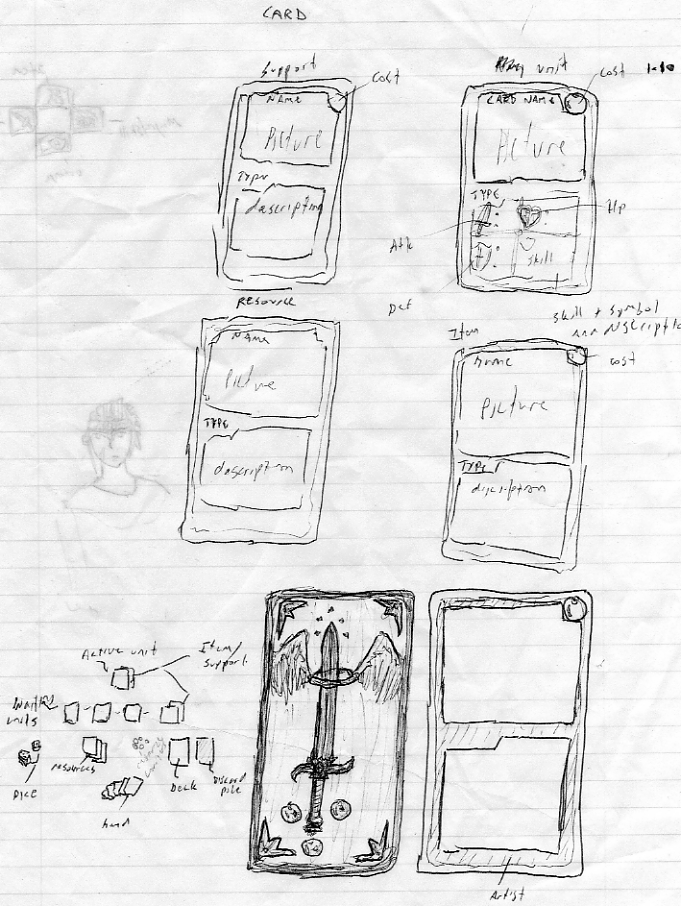 CARD
Support
cost
NAME
Picture
TYPE
description
unit
cost 1-10
CARD NAME
Picture
TYPE
Hp
Atk
Def
Skill
Skill + Symbol
RESOURCE
NAME
Picture
TYPE
description
Item
Name
cost
Picture
TYPE
discription
Active unit
Item/
Support
units
Dice
resources
Deck
Discard
pile
hand
Artist